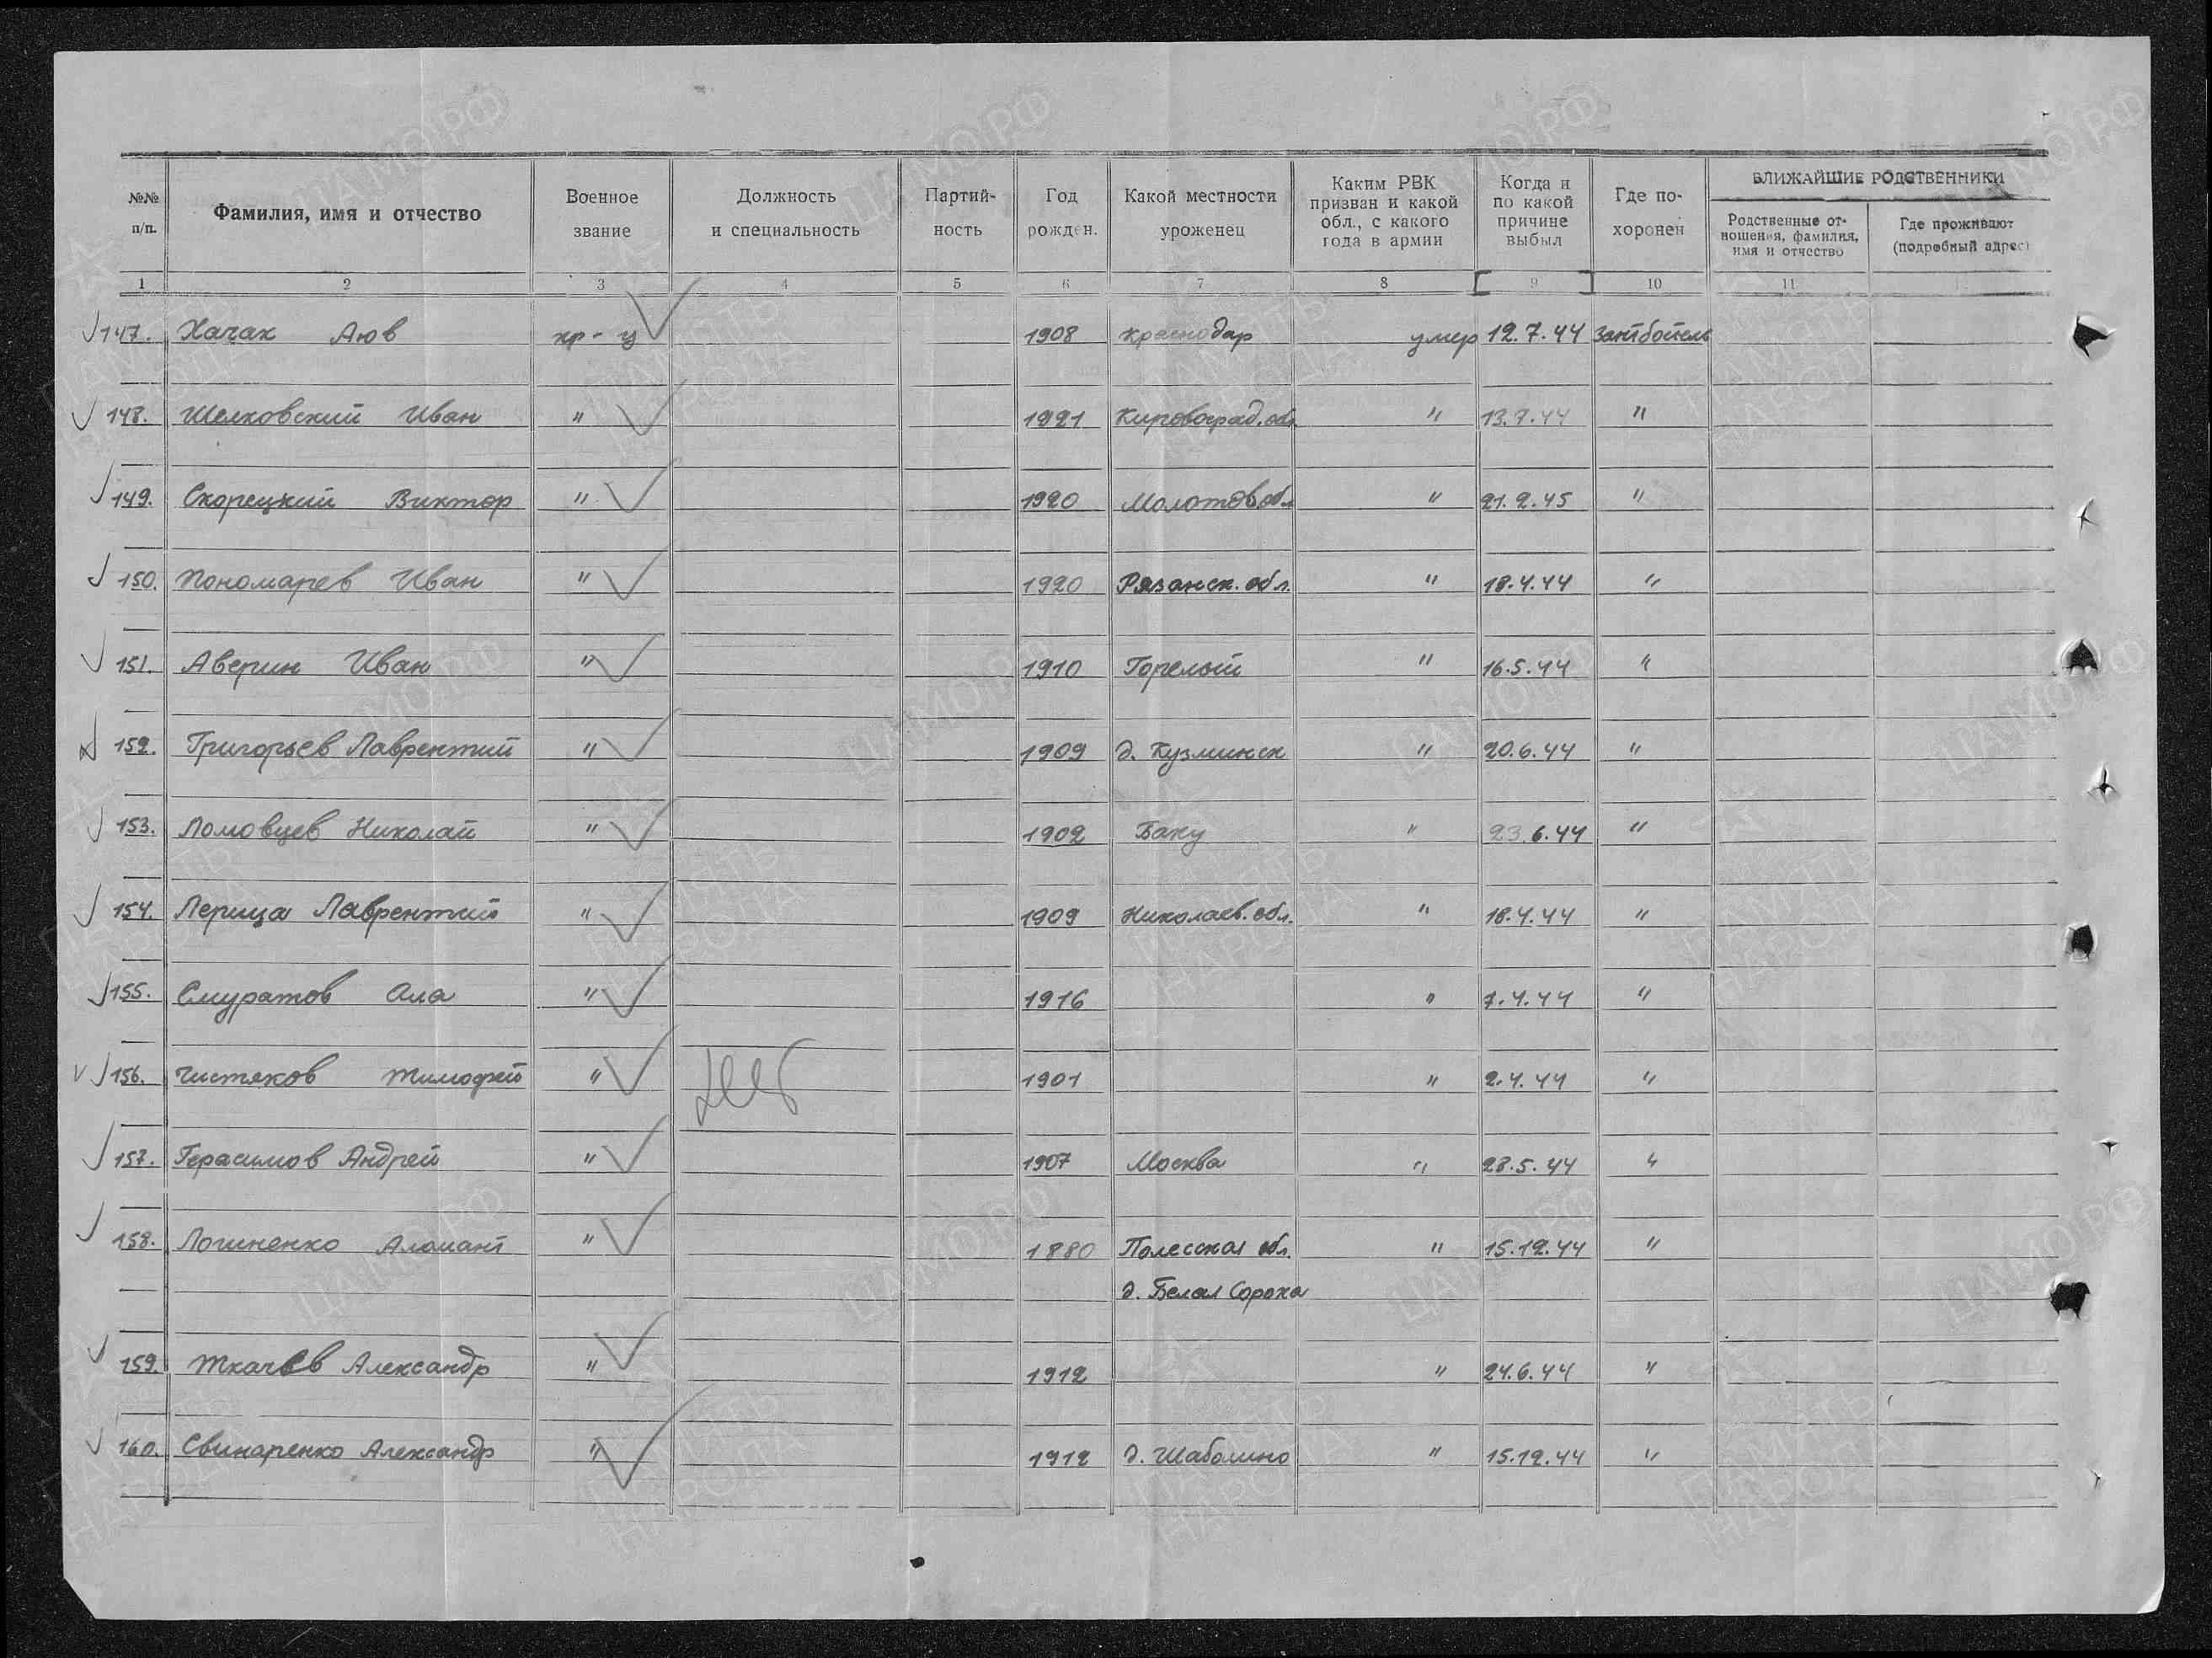 №№ п/п.
Фамилия, имя и отчество
Военное звание
Должность и специальность
Партий-ность
Год рожден.
Какой местности уроженец
Каким РВК призван и какой обл., с какого года в армии
Когда и по какой причине выбыл
Где по-хоронен
БЛИЖАЙШИЕ РОДСТВЕННИКИ
Родственные от-ношения, фамилия, имя и отчество
Где проживают (подробный адрес)
1 2 3 4 5 6 7 8 9 10 11
147. Хачак Аюв кр-ц 1908 Краснодар умер 12.7.44
148. Шелковский Иван " 1921 Кировоград. обл. " 13.7.44 "
149. Скорецкий Виктор " 1920 Молотов обл " 21.2.45 "
150. Пономарев Иван " 1920 Рязанск. обл. " 18.4.44 "
151. Аверин Иван " 1910 Горелый " 16.5.44 "
152. Григорьев Лаврентий " 1909 д. Кузминск " 20.6.44 "
153. Ломовцев Николай " 1902 Баку " 23.6.44 "
154. Лерица Лаврентий " 1909 Николаев. обл. " 18.4.44 "
155. Смуратов Ала " 1916 " 7.4.44 "
156. Чистяков Тимофей " 1901 " 2.4.44 "
157. Герасимов Андрей " 1907 Москва " 28.5.44 "
158. Логиненко " 1880 Полесская обл. " 15.12.44 "
д. Белая Сорока
159. Ткачев Александр " 1912 " 24.6.44 "
160. Свинаренко Александр " 1912 д. Шаболино " 15.12.44 "